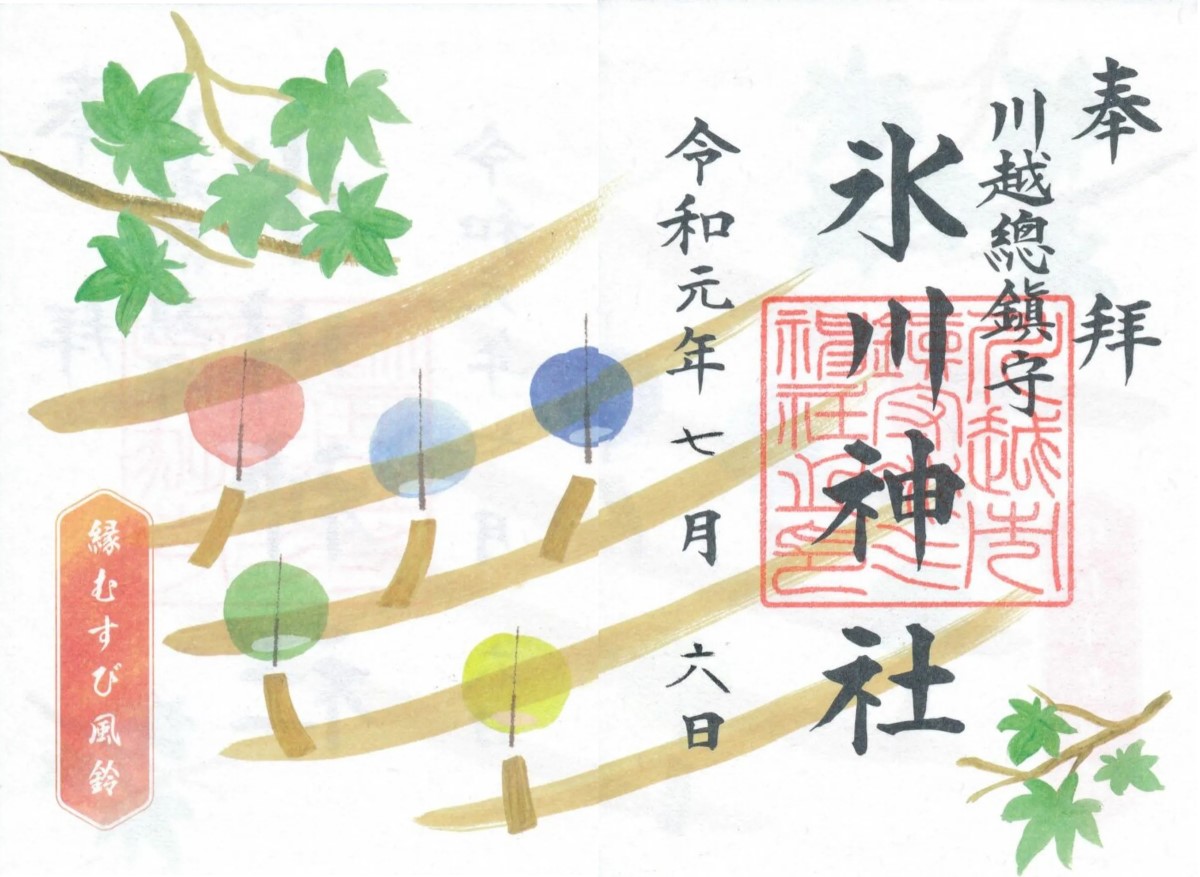 奉拝
川越總鎮守
氷川神社
令和元年七月六日
縁むすび風鈴